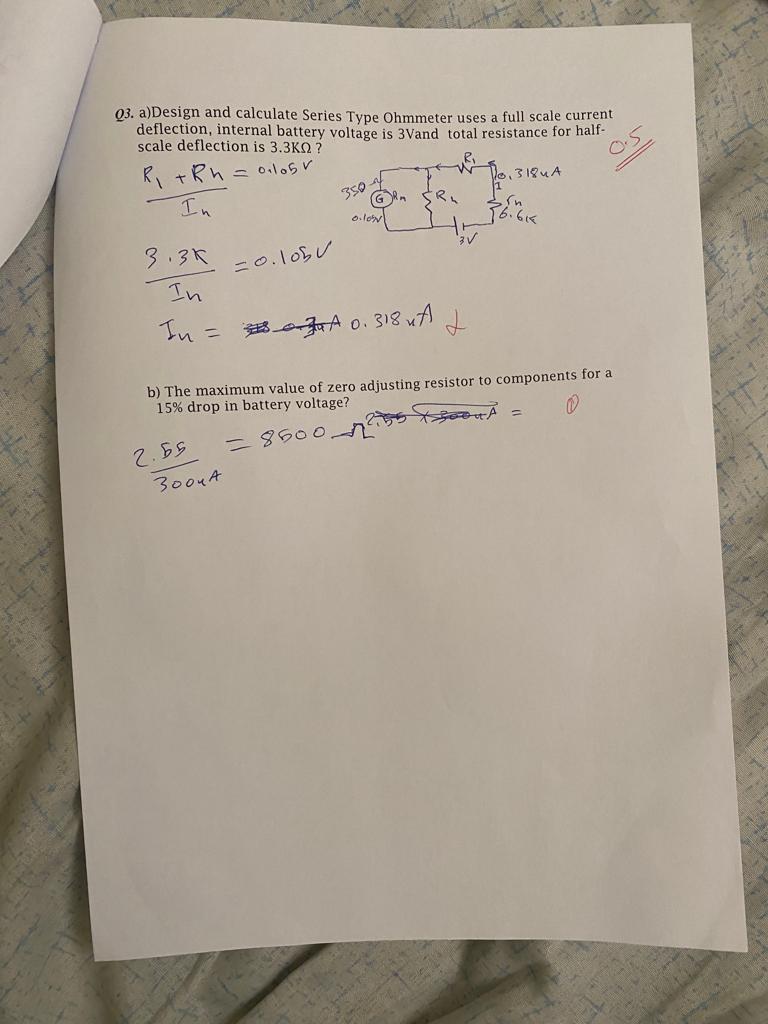 Q3. a)Design and calculate Series Type Ohmmeter uses a full scale current
deflection, internal battery voltage is 3Vand total resistance for half-
scale deflection is 3.3KΩ ?
0.5
R1 + Rh = 0.105V
In
350
G Rm
0.105V
Rh
R1
0.318uA
I
6.6K
3V
3.3K = 0.105V
In
In = 0.318uA
b) The maximum value of zero adjusting resistor to components for a
15% drop in battery voltage?
2.55 x 300uA =
0
2.55 = 8500 Ω
300uA